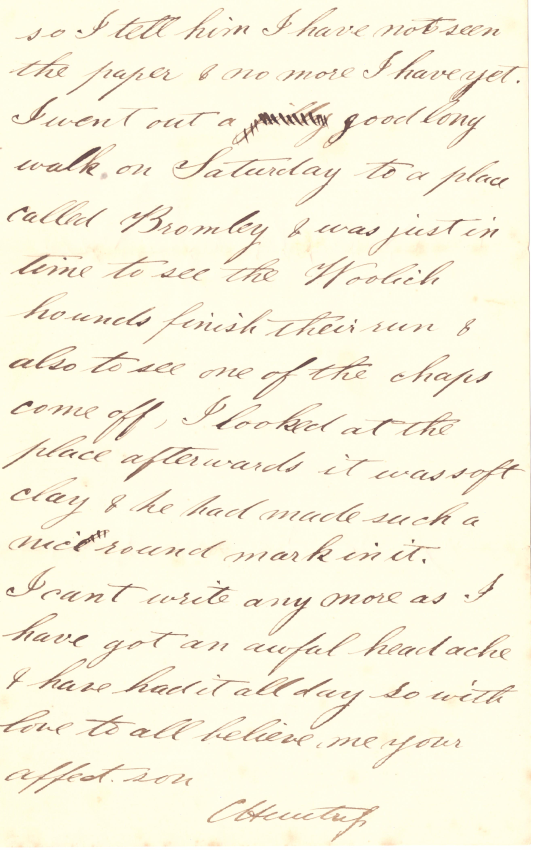 so I tell him I have not seen
the paper & no more I have yet.
I went out a good long
walk on Saturday to a place
called Bromley & was just in
time to see the Woolich
hounds finish their run &
also to see one of the chaps
come off, I looked at the
place afterwards it was soft
clay & he had made such a
nice round mark in it.
I cant write any more as I
have got an awful headache
& have had it all day so with
love to all believe me your
affect. son